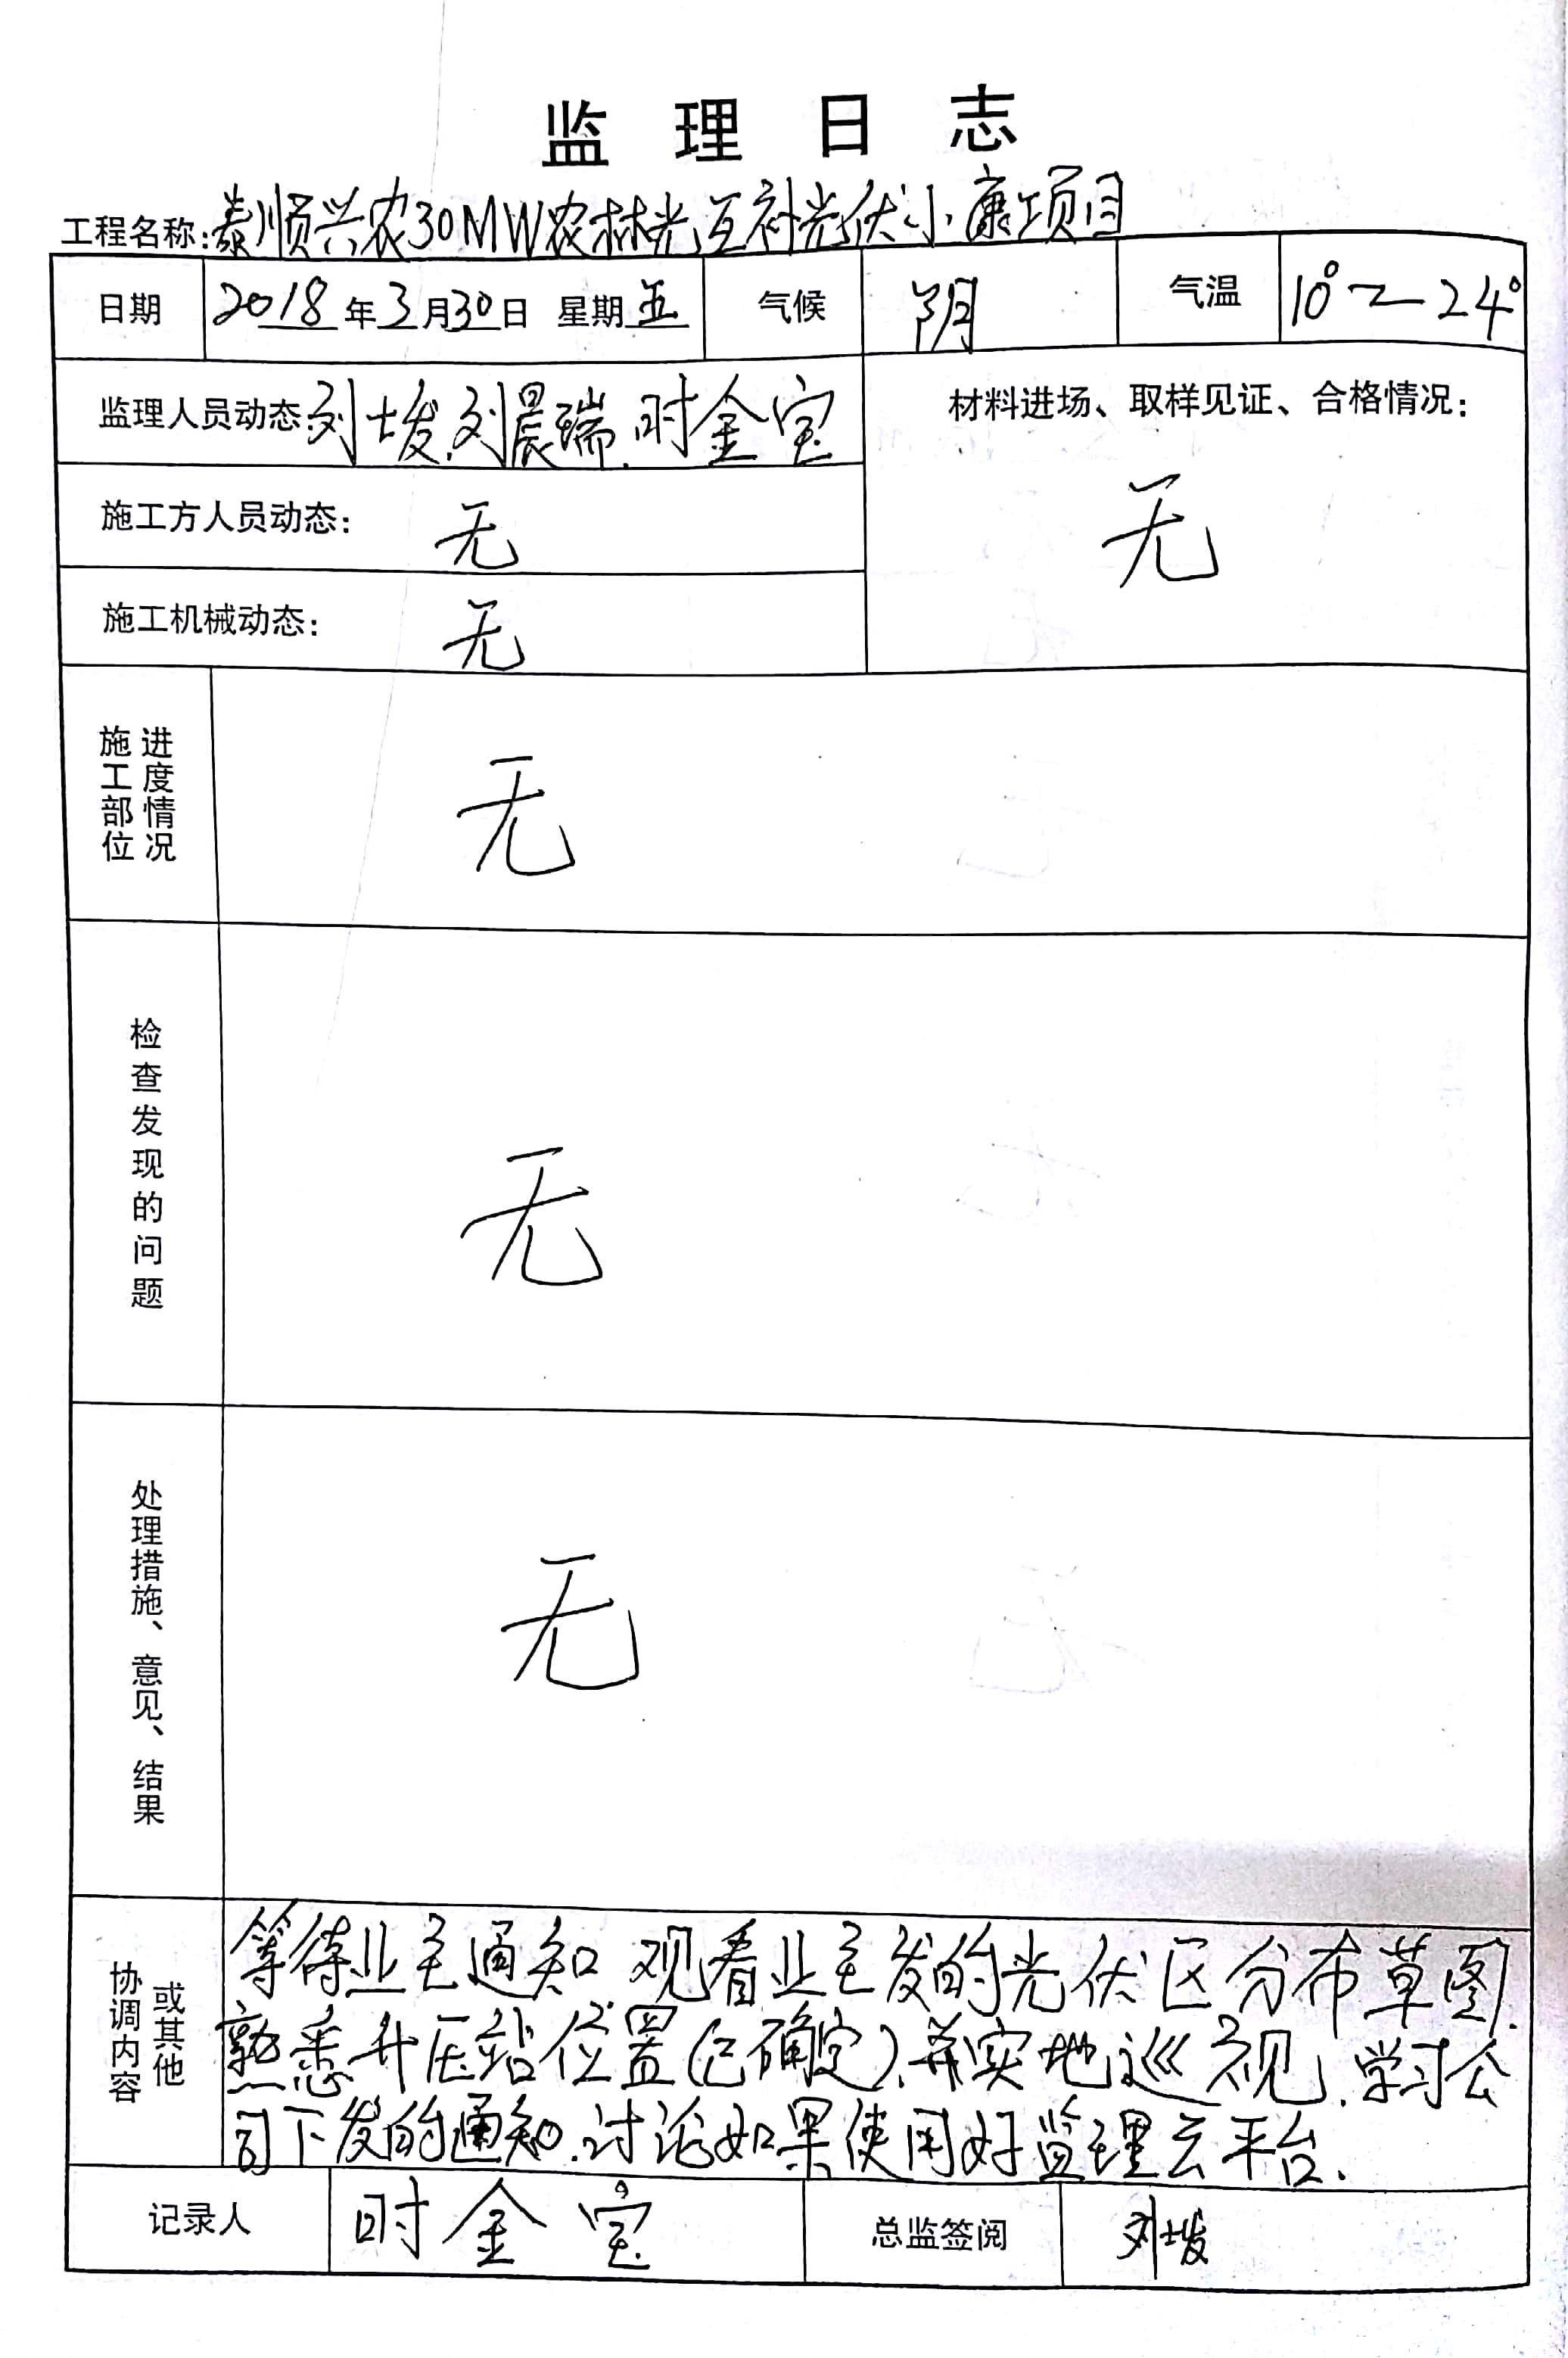 监理日志
工程名称:泰顺兴农30MW农林光互补光伏小康项目
日期 2018年3月30日 星期五 气候 阴 气温 10°~24°
监理人员动态 刘士发.刘晨瑞.时金宝
材料进场、取样见证、合格情况:
无
施工方人员动态: 无
施工机械动态: 无
施工部位
进度情况
无
检查发现的问题
无
处理措施、意见、结果
无
协调内容
或其他
等待业主通知 观看业主发的光伏区分布草图.
熟悉升压站位置(已确定).并实地巡视.学习公
司下发的通知.讨论如果使用好监理云平台.
记录人 时金宝 总监签阅 刘士发